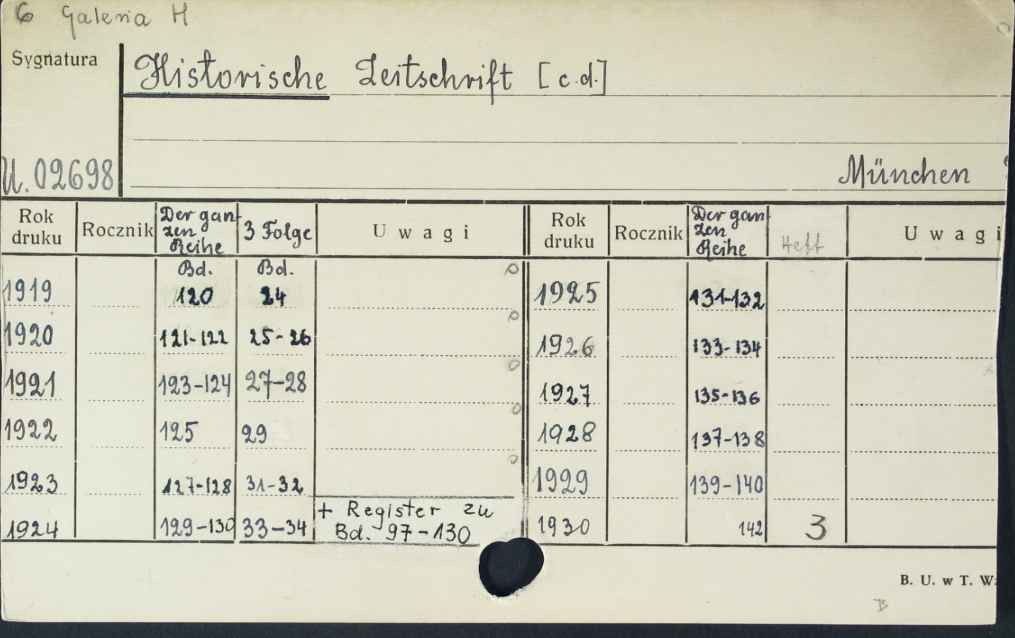 6 Galeria H
Sygnatura
Historische Zeitschrift [c.d.]
U. 02698
München
Rok druku Rocznik Der ganzen Reihe 3 Folge Uwagi Rok druku Rocznik Der ganzen Reihe Heft Uwagi
Bd. Bd.
1919 120 24 1925 131-132
1920 121-122 25-26 1926 133-134
1921 123-124 27-28 1927 135-136
1922 125 29 1928 137-138
1923 127-128 31-32 1929 139-140
1924 129-130 33-34 + Register zu Bd. 97-130 1930 142 3
B. U. w T.
B